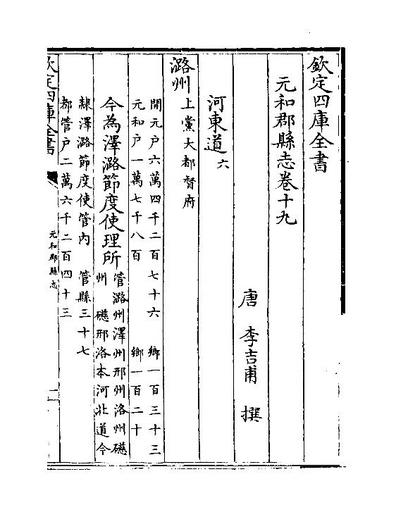 欽定四庫全書
元和郡縣志卷十九
唐 李吉甫 撰
河東道 六
潞州 上黨大都督府
開元戶六萬四千二百七十六 鄉一百三十三
元和戶一萬七千八百 鄉一百二十
今為澤潞節度使理所 管潞州澤州邢州洛州磁
州 磁邢洛本河北道今
隸澤潞節度使管內 管縣三十七
都管戶二萬六千二百四十三
欽定四庫全書 元和郡縣志